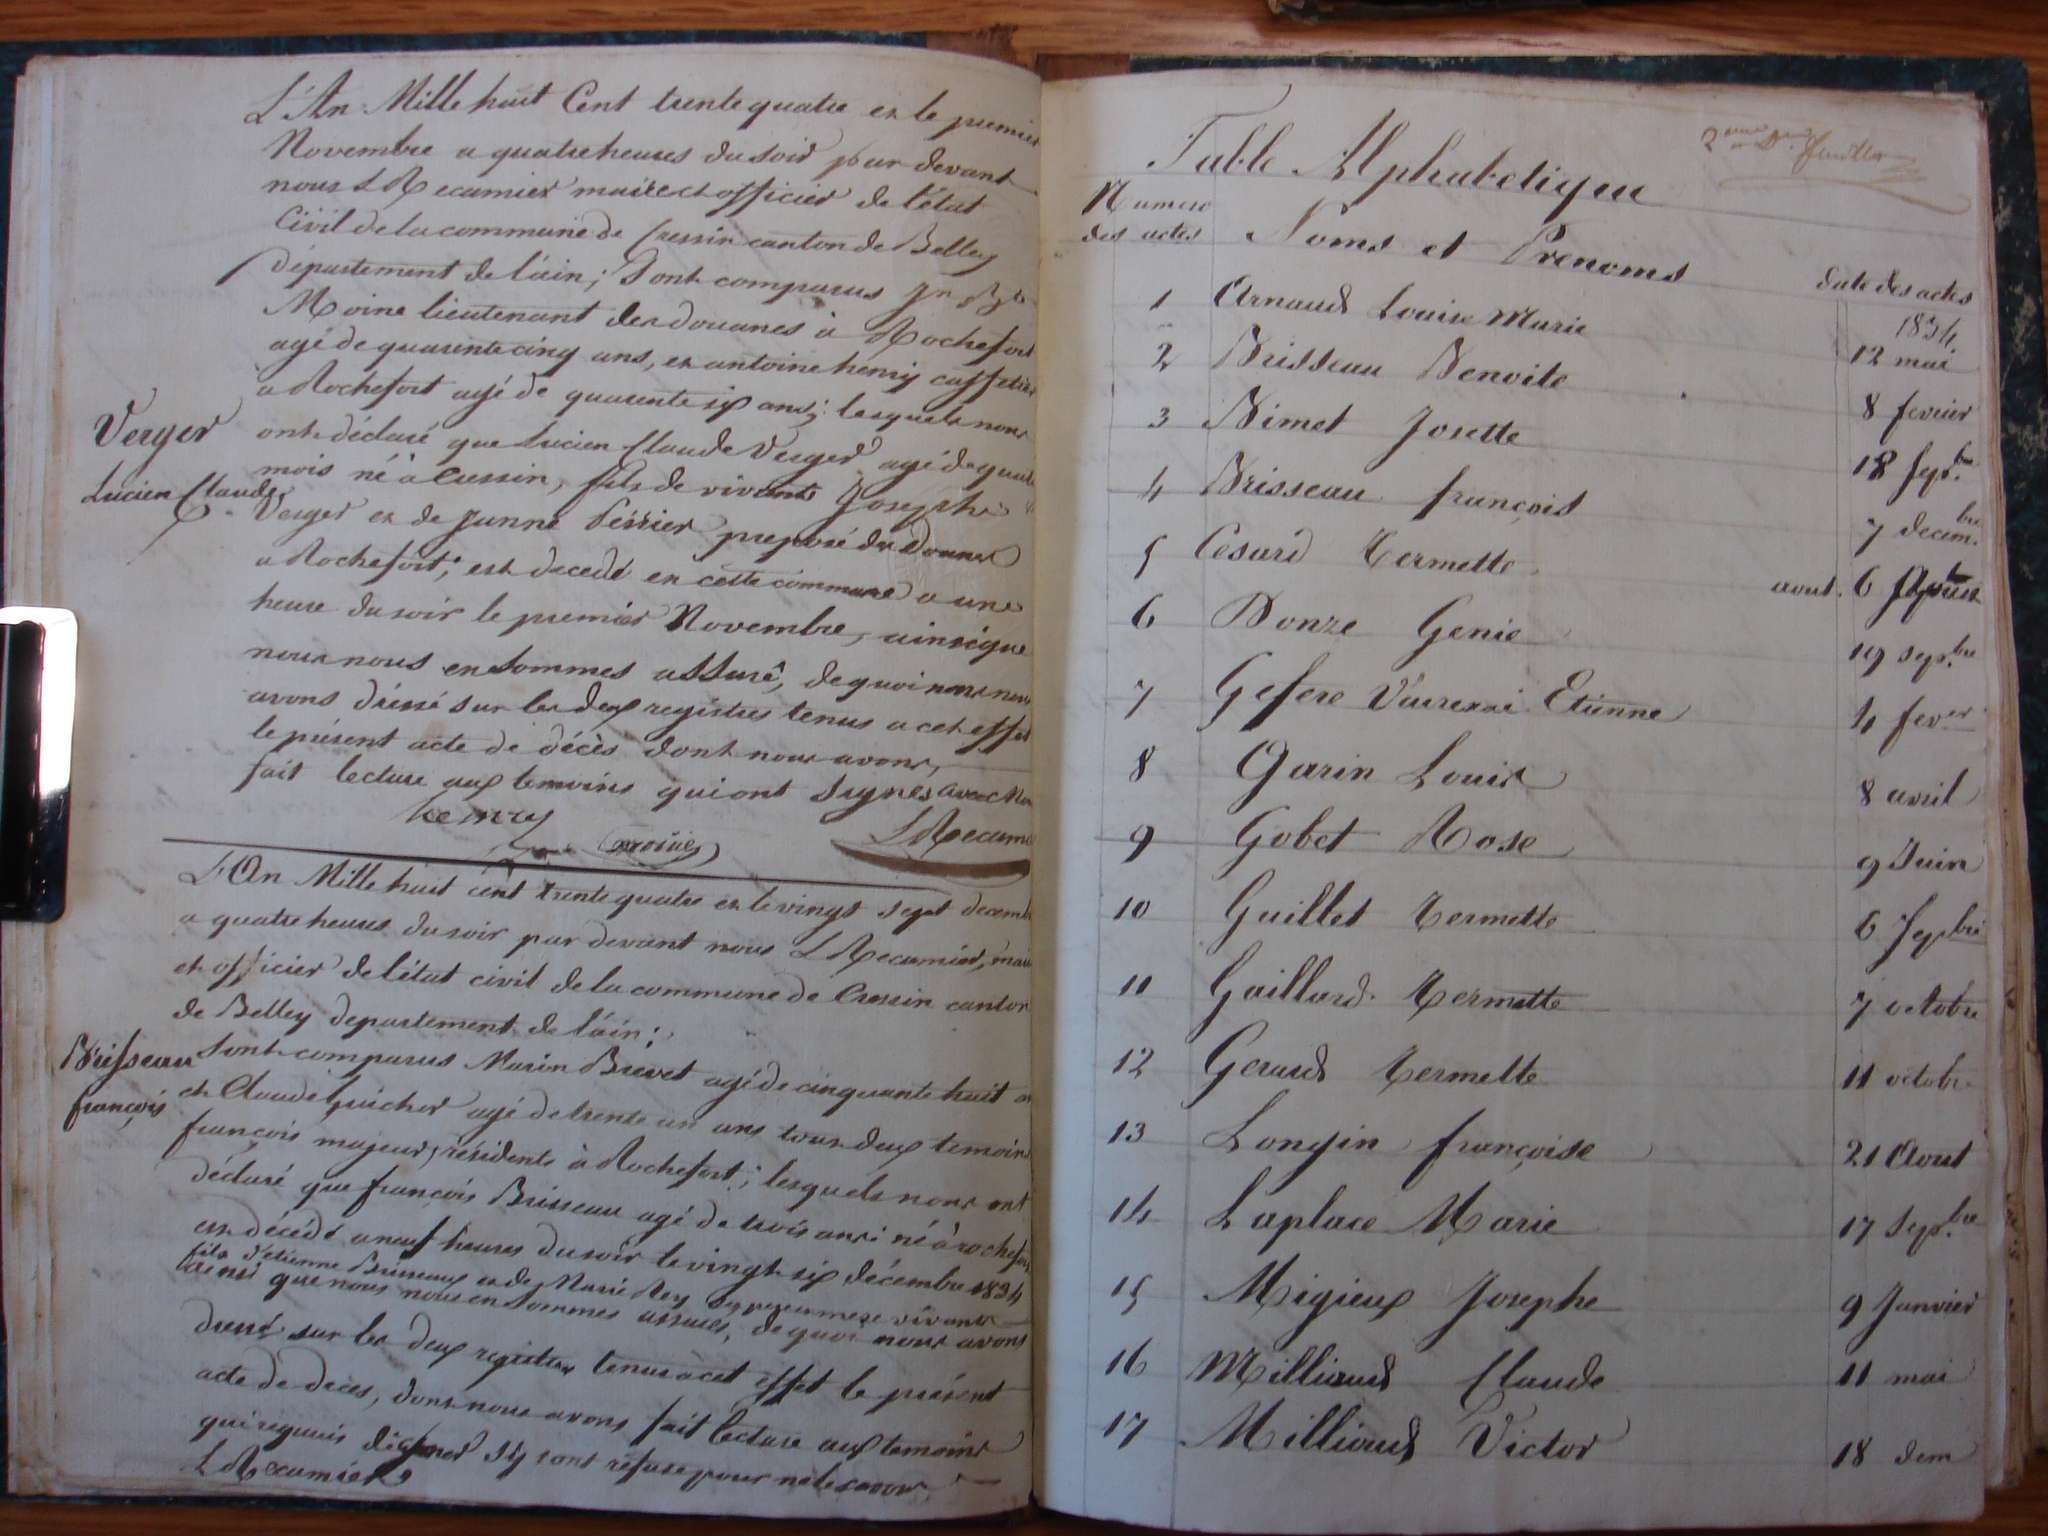 L'An Mille huit Cent trente quatre et le premier
Novembre a quatre heures du soir par devant
nous L Recamier maire et officier de l'état
Civil de la commune de Cressin canton de Belley
département de l'ain; Sont comparus Jn Bte
Moine lieutenant des douanes à Rochefort
agé de quarente cinq ans, et antoine henry caffetier
a Rochefort agé de quarente six ans; lesquels nous
ont déclaré que Lucien Claude Verger agé de quatre
mois né à Cressin, fils de vivants Joseph
Verger et de Jeanne Perrier preposé des Douanes
a Rochefort; est decedé en cette commune a une
heure du soir le premier Novembre, ainsi que
nous nous en Sommes assuré, de quoi nous nous
avons dressé sur les deux registres tenus a cet effet
le présent acte de décès dont nous avons,
fait lecture aux temoins qui ont Signés avec Nous
henry moine L Recamier
Verger
Lucien Claude
L'An Mille huit cent trente quatre et le vingt sept decembre
a quatre heures du soir par devant nous L Recamier, maire
et officier de l'état civil de la commune de Cressin canton
de Belley departement de l'ain;
Sont comparus Marin Brevet agé de cinquante huit ans
et Claude Guichard agé de trente un ans tous deux temoins
françois majeurs, résidents à Rochefort; lesquels nous ont
déclaré que françois Brisseau agé de trois ans né à rochefort
est décédé a neuf heures du soir le vingt six décembre 1834
fils d'etienne Brisseaux et de Marie Rey ses pere et mere vivants
ainsi que nous nous en Sommes assurés, de quoi nous avons
dressé sur les deux registres tenus a cet effet le présent
acte de décès, dont nous avons fait lecture aux temoins
qui requis de signer s'y sont refusé pour ne le savoir
L Recamier
Brisseau
françois
2eme Dr feuillet
Table Alphabetique
Numero des actes
Noms et Prenoms
date des actes
1834
1 Arnaud Louise Marie 12 mai
2 Brisseau Benoite 8 fevrier
3 Bimet Josette 18 Sepbre
4 Brisseau françois 7 decembre
5 Cesard Hermette aout. 6
6 Donze Genie 19 sepbre
7 Gefere Etienne 4 fever
8 Garin Louis 8 avril
9 Gobet Rose 9 Juin
10 Guillet Hermette 6 Sepbre
11 Gaillard Hermette 7 octobre
12 Gerard Hermette 11 octobre
13 Longin françoise 21 Aout
14 Laplace Marie 17 Sepbre
15 Migieux Josephe 9 Janvier
16 Milliaud Claude 11 mai
17 Milliaud Victor 18 dem